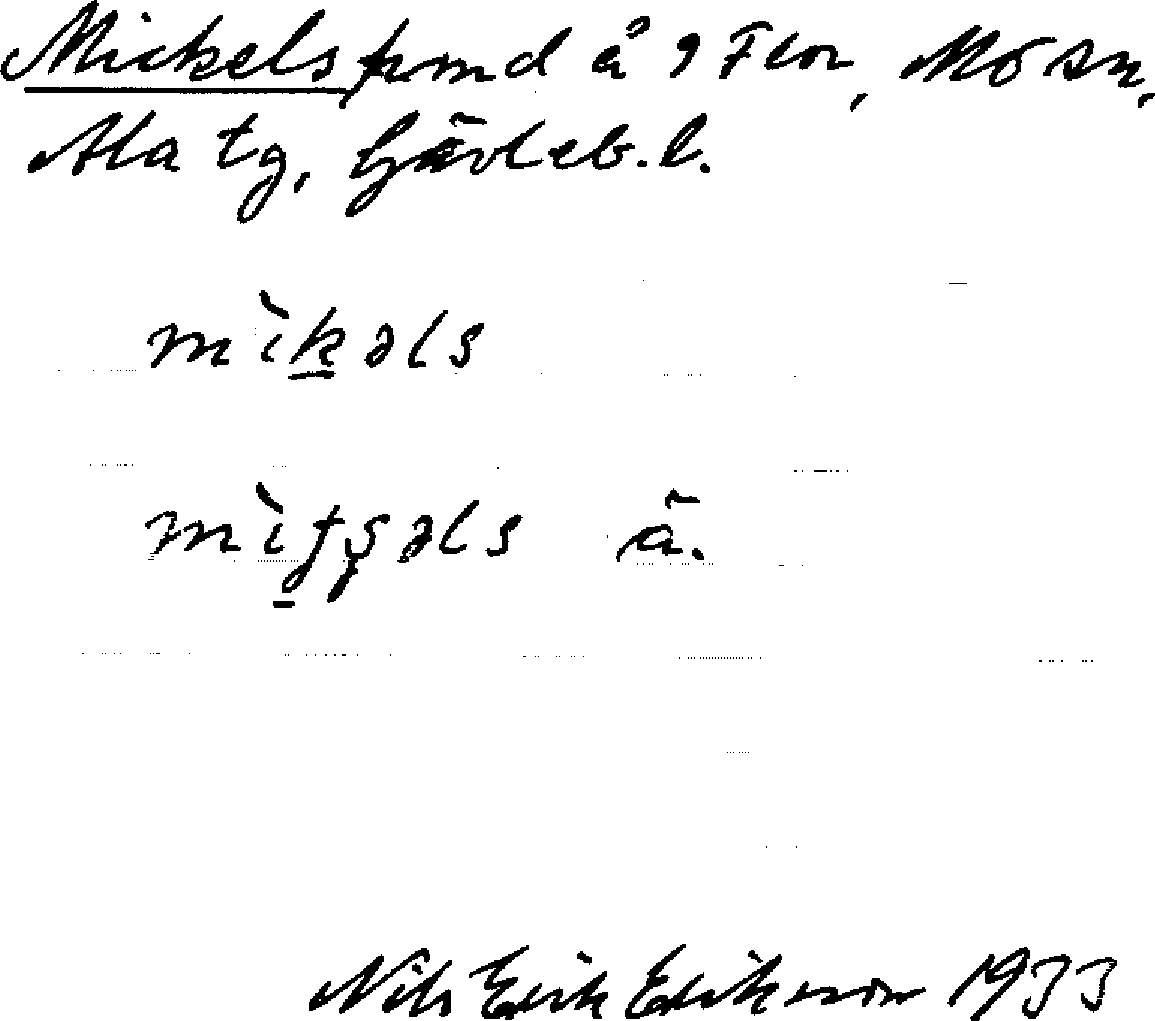 Mickels frmd å 9 Flor, Mo sn,
Ala tg, Gävleb. l.
mìk̲əls
mìtʂəls ä.
Nils Erik Eriksson 1933